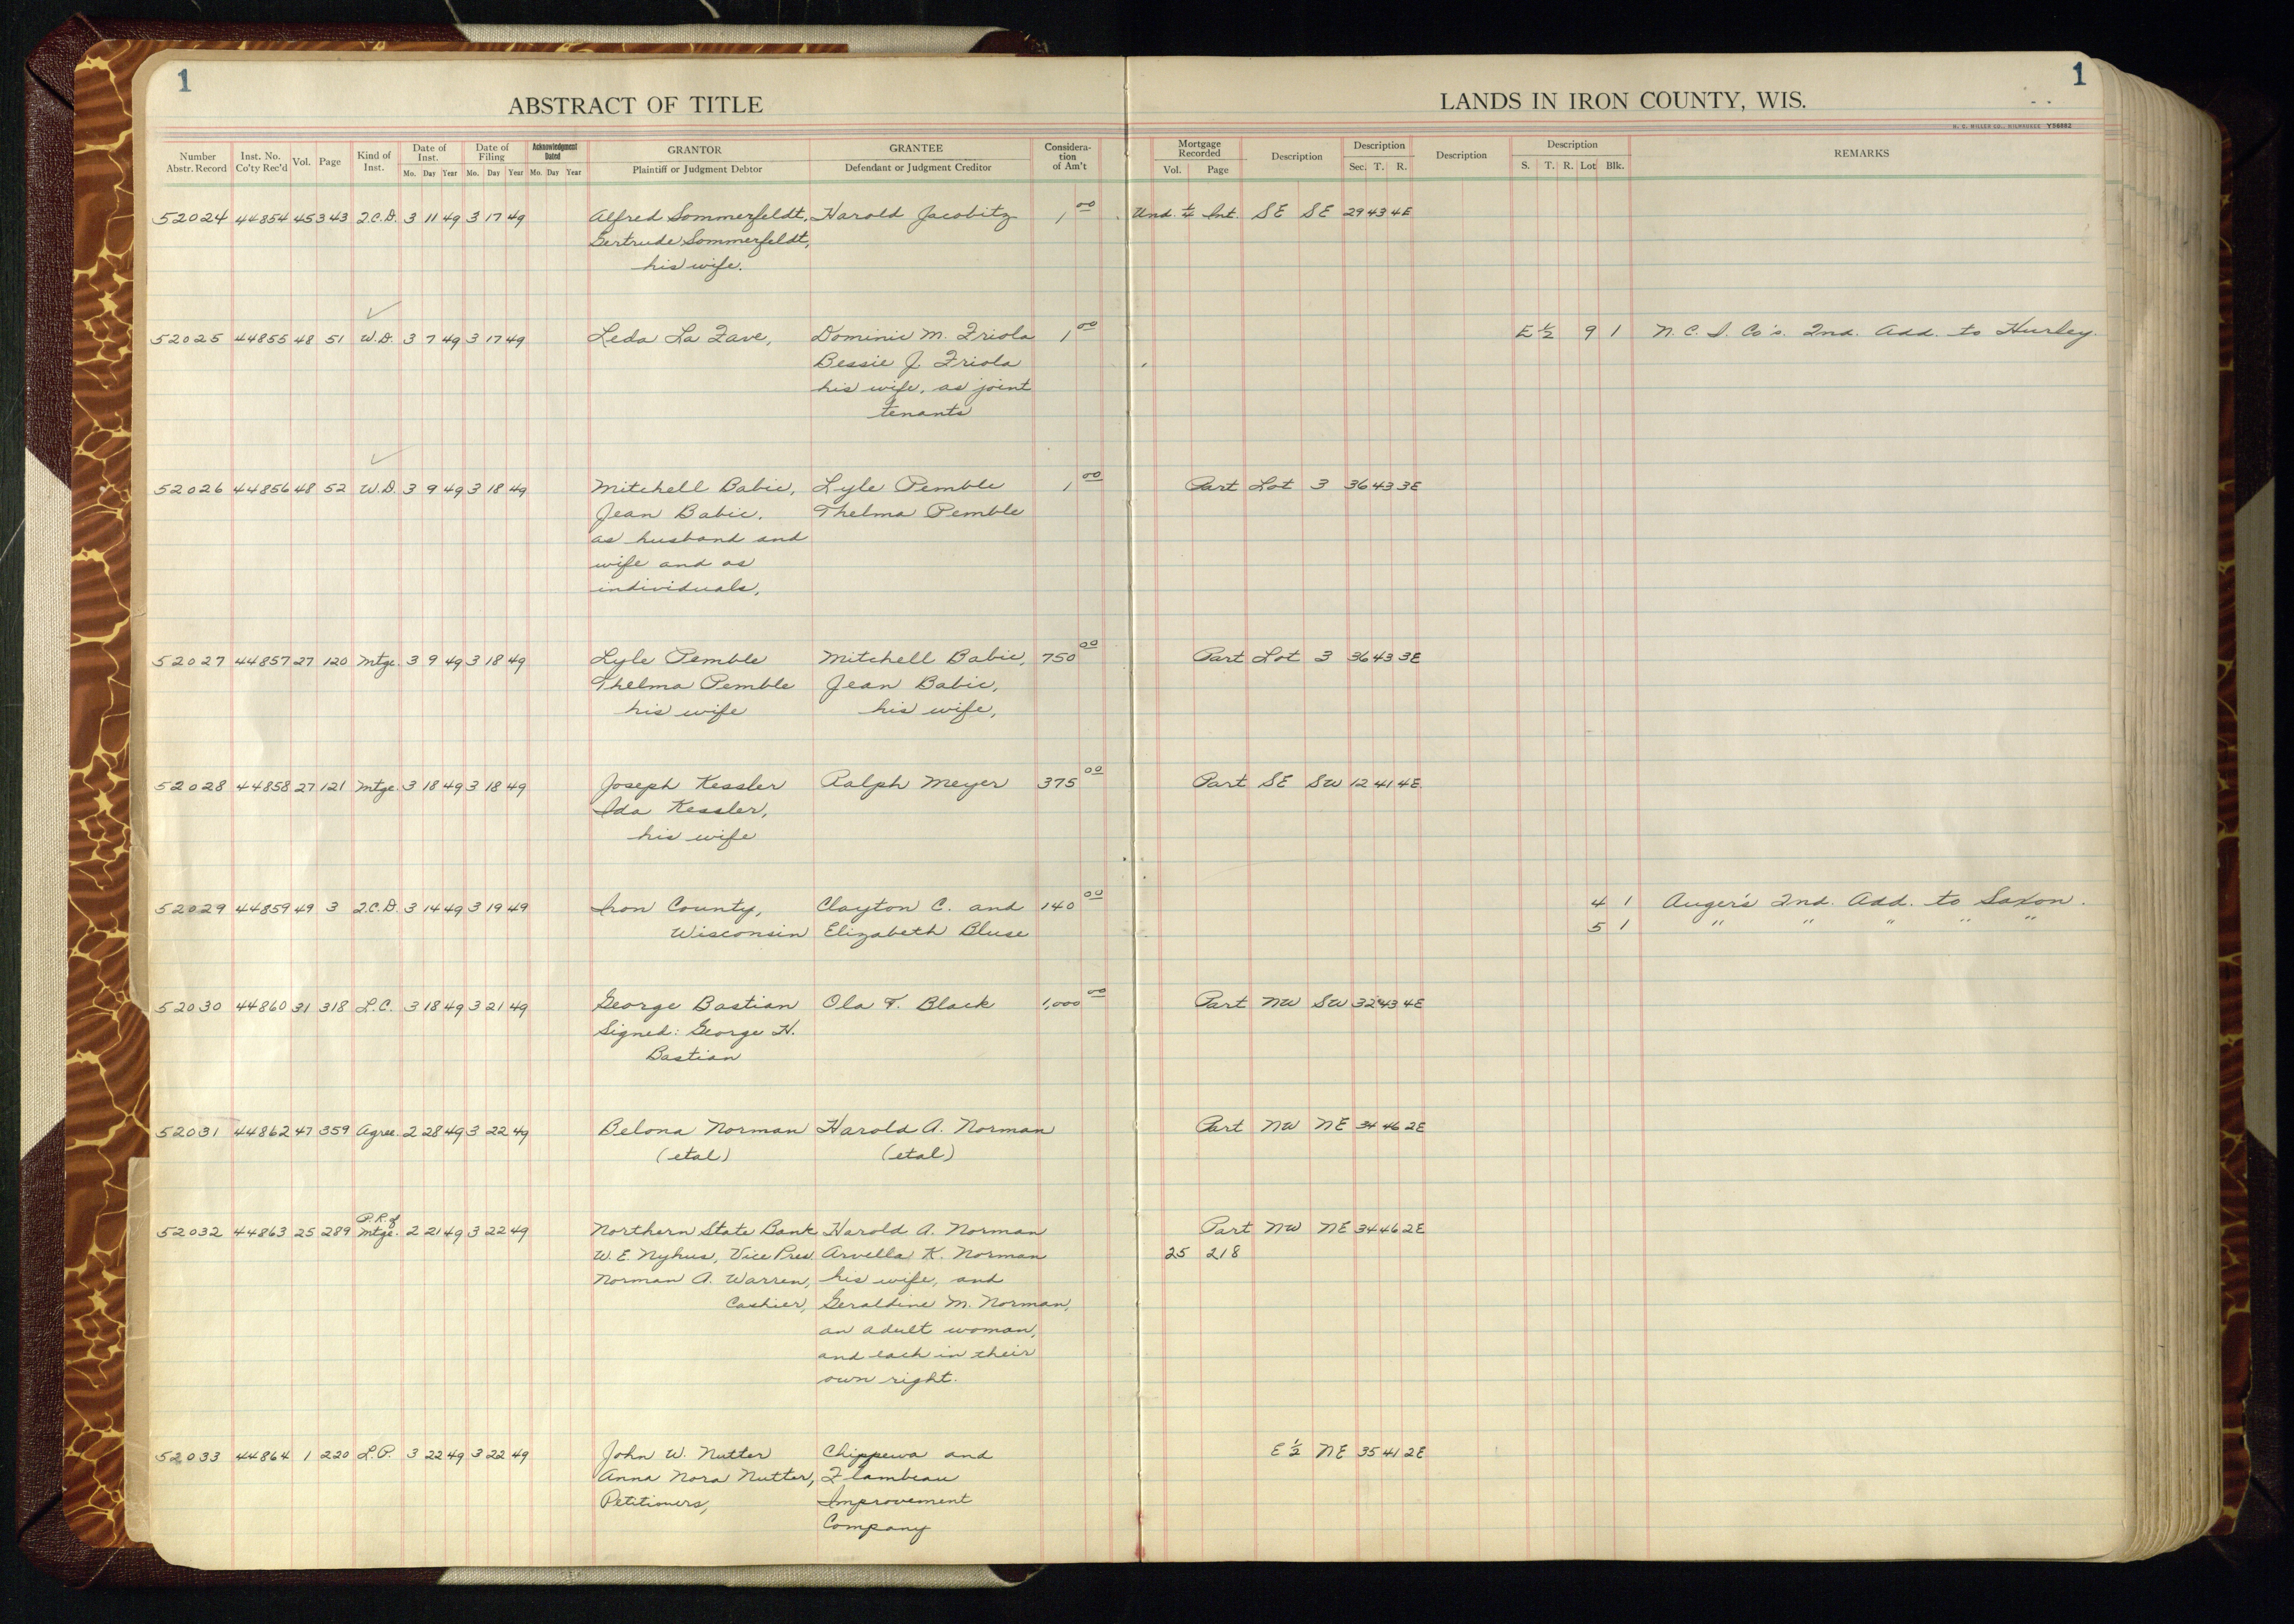 1
1
ABSTRACT OF TITLE
LANDS IN IRON COUNTY, WIS.
H. C. MILLER CO., MILWAUKEE Y96882
Number Abstr. Record
Inst. No. Co'ty Rec'd
Vol.
Page
Kind of Inst.
Date of Inst.
Mo. Day Year
Date of Filing
Mo. Day Year
Acknowledgment Dated
Mo. Day Year
GRANTOR
Plaintiff or Judgment Debtor
GRANTEE
Defendant or Judgment Creditor
Considera-tion of Am't
Mortgage Recorded
Vol. Page
Description
Description
Sec. T. R.
Description
Description
S. T. R. Lot Blk.
REMARKS
52024 44854 45 343 Q.C.D. 3 11 49 3 17 49 Alfred Sommerfeldt, Harold Jacobitz 1 00 Und. ¼ Int. SE SE 29 43 4E
Gertrude Sommerfeldt,
his wife.
52025 44855 48 51 W.D. 3 7 49 3 17 49 Leda La Fave, Dominic M. Friola 1 00 E½ 9 1 N.C.I. Co's. 2nd. Add. to Hurley.
Bessie J. Friola
his wife, as joint
tenants
52026 44856 48 52 W.D. 3 9 49 3 18 49 Mitchell Babic, Lyle Pemble 1 00 Part Lot 3 36 43 3E
Jean Babic, Thelma Pemble
as husband and
wife and as
individuals,
52027 44857 27 120 Mtge. 3 9 49 3 18 49 Lyle Pemble Mitchell Babic, 750 00 Part Lot 3 36 43 3E
Thelma Pemble Jean Babic,
his wife his wife,
52028 44858 27 121 Mtge. 3 18 49 3 18 49 Joseph Kessler Ralph Meyer 375 00 Part SE SW 12 41 4E
Ida Kessler,
his wife
52029 44859 49 3 Q.C.D. 3 14 49 3 19 49 Iron County, Clayton C. and 140 00 4 1 Auger's 2nd. Add. to Saxon.
Wisconsin Elizabeth Bluse 5 1 " " " " "
52030 44860 31 318 L.C. 3 18 49 3 21 49 George Bastian Ola T. Black 1,000 00 Part NW SW 32 43 4E
Signed: George H.
Bastian
52031 44862 47 359 Agree. 2 28 49 3 22 49 Belona Norman Harold A. Norman Part NW NE 34 46 2E
(etal) (etal)
P.R. of
52032 44863 25 289 Mtge. 2 21 49 3 22 49 Northern State Bank Harold A. Norman Part NW NE 34 46 2E
W. E. Nyhus, Vice Pres. Arvella K. Norman 25 218
Norman A. Warren, his wife, and
Cashier, Geraldine M. Norman,
an adult woman,
and each in their
own right.
52033 44864 1 220 L.P. 3 22 49 3 22 49 John W. Nutter Chippewa and E½ NE 35 41 2E
Anna Nora Nutter, Flambeau
Petitioners, Improvement
Company